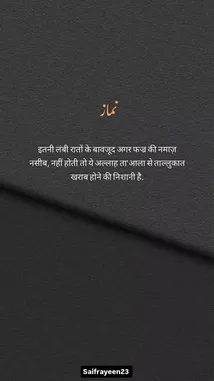 نماز
इतनी लंबी रातों के बावजूद अगर फज्र की नमाज़
नसीब, नहीं होती तो ये अल्लाह ता'आला से ताल्लुकात
खराब होने की निशानी है.
Saifrayeen23